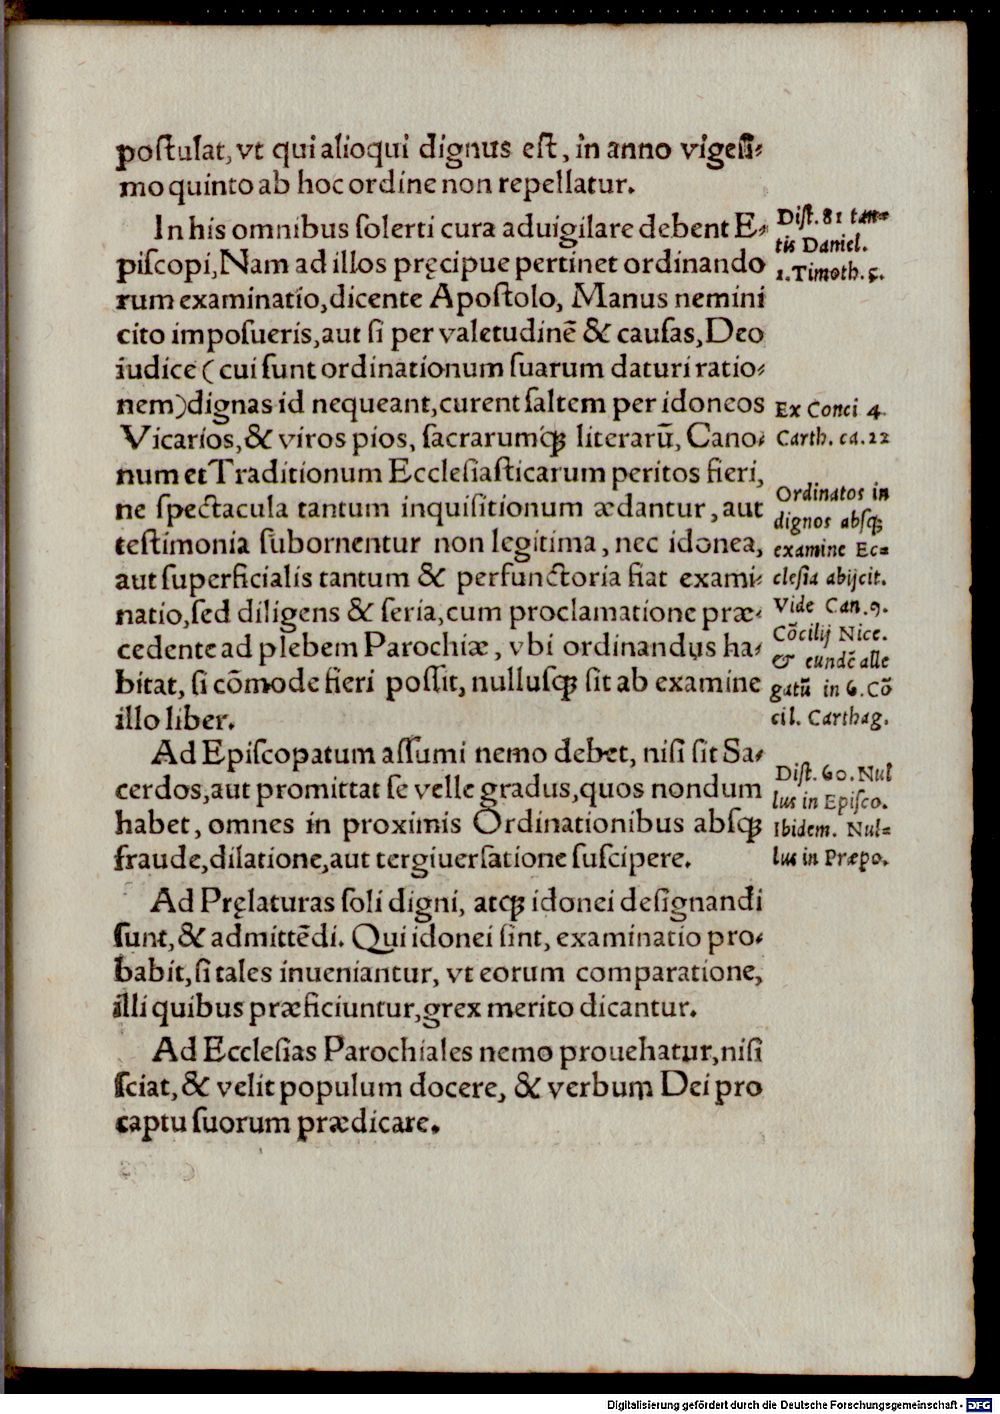 poſtulat, vt qui alioqui dignus eſt, in anno vigeſi-
mo quinto ab hoc ordine non repellatur.
In his omnibus ſolerti cura aduigilare debent E-
piſcopi, Nam ad illos pręcipue pertinet ordinando
rum examinatio, dicente Apoſtolo, Manus nemini
cito impoſueris, aut ſi per valetudinē & cauſas, Deo
iudice ( cui ſunt ordinationum ſuarum daturi ratio-
nem) dignas id nequeant, curent ſaltem per idoneos
Vicarios, & viros pios, ſacrarumꝙ literarū, Cano-
num et Traditionum Eccleſiaſticarum peritos fieri,
ne ſpectacula tantum inquiſitionum ædantur, aut
teſtimonia ſubornentur non legitima, nec idonea,
aut ſuperficialis tantum & perfunctoria fiat exami-
natio, ſed diligens & ſeria, cum proclamatione præ-
cedente ad plebem Parochiæ, vbi ordinandus ha-
bitat, ſi cōmode fieri poſſit, nulluſꝙ ſit ab examine
illo liber.
Ad Epiſcopatum aſſumi nemo debet, niſi ſit Sa-
cerdos, aut promittat ſe velle gradus, quos nondum
habet, omnes in proximis Ordinationibus abſꝙ
fraude, dilatione, aut tergiuerſatione ſuſcipere.
Ad Pręlaturas ſoli digni, atꝙ idonei deſignandi
ſunt, & admittēdi. Qui idonei ſint, examinatio pro-
babit, ſi tales inueniantur, vt eorum comparatione,
illi quibus præficiuntur, grex merito dicantur.
Ad Eccleſias Parochiales nemo prouehatur, niſi
ſciat, & velit populum docere, & verbum Dei pro
captu ſuorum prædicare.
Diſt. 81 tan-
tis Daniel.
1. Timoth. 5.
Ex Conci 4.
Carth. ca. 22
Ordinatos in
dignos abſꝙ
examine Ec-
cleſia abijcit.
Vide Can. 9.
Cōcilij Nice.
& eundē alle
gatū in 6. Cō
cil. Carthag.
Diſt. 60. Nul
lus in Epiſco.
Ibidem. Nul-
lus in Præpo.
Digitalisierung gefördert durch die Deutsche Forschungsgemeinschaft - DFG